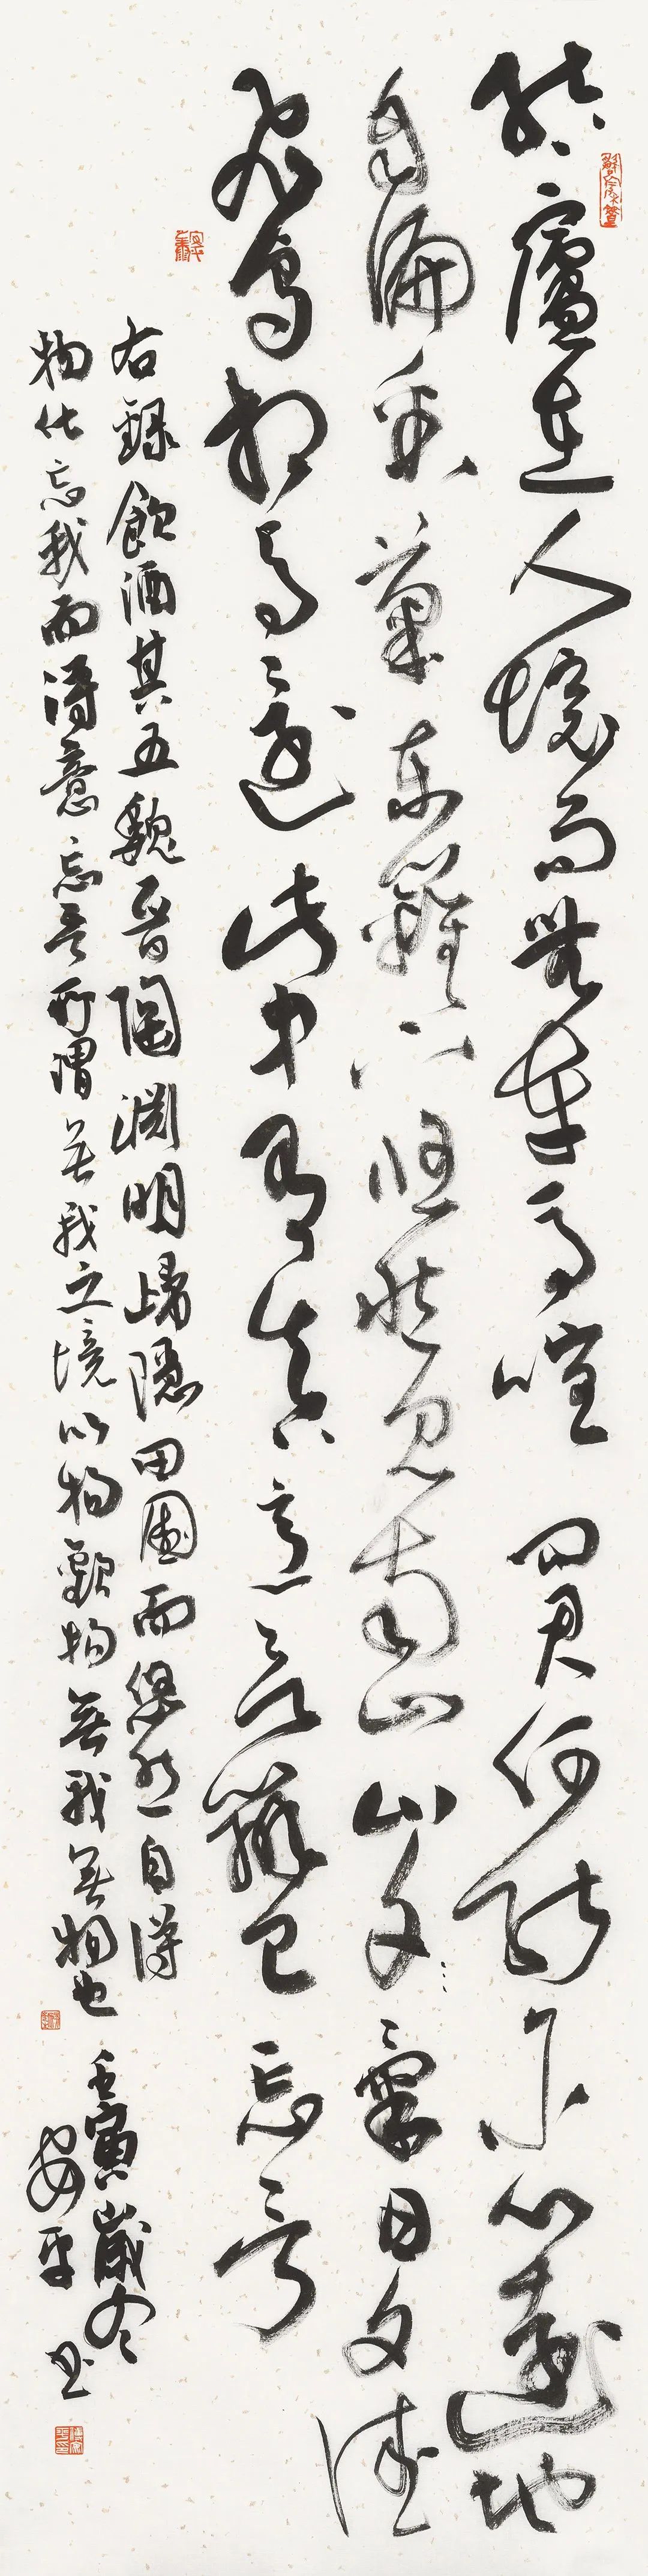 結廬在人境而無車馬喧問君何能尔心遠地
自偏采菊東籬下悠然見南山山夕氣日夕佳
飛鳥相與還此中有真意欲辨已忘言
右録飲酒其五魏晉陶淵明歸隱田園而悠然自得
物化忘我而得意忘言所謂無我之境以物觀物無我無物也
壬寅歲冬
安平書